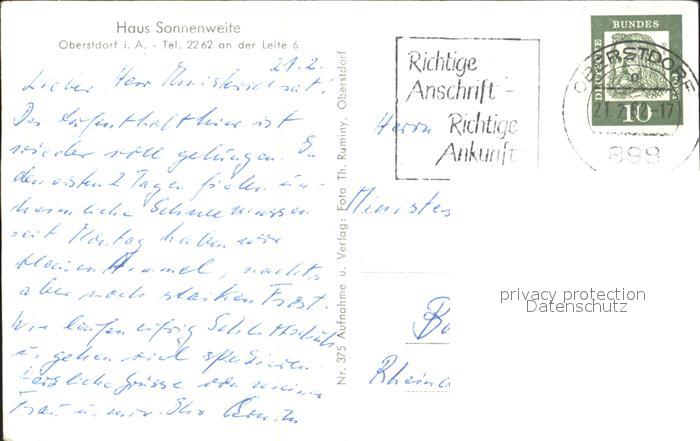 Haus Sonnenweite
Oberstdorf i. A. - Tel. 22 62 an der Leite 6
21.2.
Lieber Herr Ministerialrat!
Der Aufenthalt hier ist
wieder voll gelungen. In
den ersten 2 Tagen fielen un-
heimliche Schneemassen
seit Montag haben wir
blauen Himmel, nachts
aber noch starken Frost.
Wir laufen eifrig Schlittschuh
u. gehen viel spazieren.
Herzliche Grüsse von meiner
Frau u. mir. Ihr
Nr. 375 Aufnahme u. Verlag: Foto Th. Ruminy, Oberstdorf
Richtige
Anschrift -
Richtige
Ankunft
DEUTSCHE BUNDESPOST
10
OBERSTDORF
21.2.
-17
898
Herrn
Minister
Bo
Rhein
privacy protection
Datenschutz